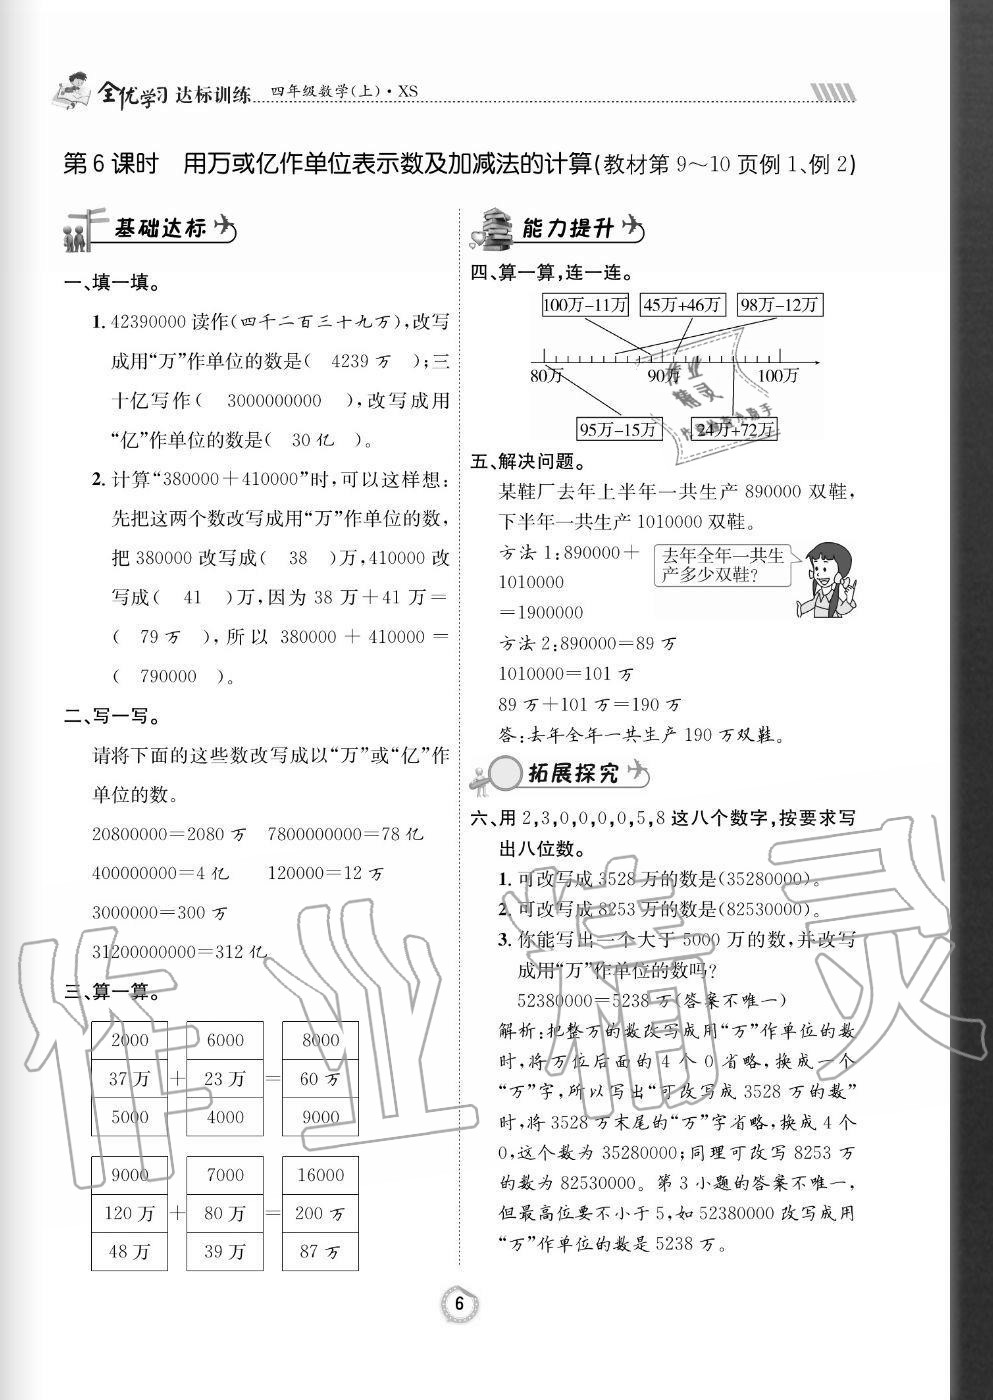 全优学习 达标训练 四年级数学(上)·XS
第6课时 用万或亿作单位表示数及加减法的计算(教材第9～10页例1、例2)
基础达标
一、填一填。
1. 42390000读作(四千二百三十九万),改写
成用“万”作单位的数是( 4239万 );三
十亿写作( 3000000000 ),改写成用
“亿”作单位的数是( 30亿 )。
2. 计算“380000+410000”时,可以这样想:
先把这两个数改写成用“万”作单位的数,
把380000改写成( 38 )万,410000改
写成( 41 )万,因为38万+41万=
( 79万 ),所以 380000 + 410000 =
( 790000 )。
二、写一写。
请将下面的这些数改写成以“万”或“亿”作
单位的数。
20800000=2080万 7800000000=78亿
400000000=4亿 120000=12万
3000000=300万
31200000000=312亿
三、算一算。
2000 6000 8000
37万 + 23万 = 60万
5000 4000 9000
9000 7000 16000
120万 + 80万 = 200万
48万 39万 87万
能力提升
四、算一算,连一连。
100万-11万 45万+46万 98万-12万
80万 90万 100万
95万-15万 24万+72万
五、解决问题。
某鞋厂去年上半年一共生产890000双鞋,
下半年一共生产1010000双鞋。
方法1:890000+
1010000
=1900000
去年全年一共生
产多少双鞋?
方法2:890000=89万
1010000=101万
89万+101万=190万
答:去年全年一共生产190万双鞋。
拓展探究
六、用2,3,0,0,0,0,5,8这八个数字,按要求写
出八位数。
1. 可改写成3528万的数是(35280000)。
2. 可改写成8253万的数是(82530000)。
3. 你能写出一个大于5000万的数,并改写
成用“万”作单位的数吗?
52380000=5238万(答案不唯一)
解析:把整万的数改写成用“万”作单位的数
时,将万位后面的4个0省略,换成一个
“万”字,所以写出“可改写成3528万的数”
时,将3528万末尾的“万”字省略,换成4个
0,这个数为35280000;同理可改写8253万
的数为82530000。第3小题的答案不唯一,
但最高位要不小于5,如52380000改写成用
“万”作单位的数是5238万。
6
作业精灵